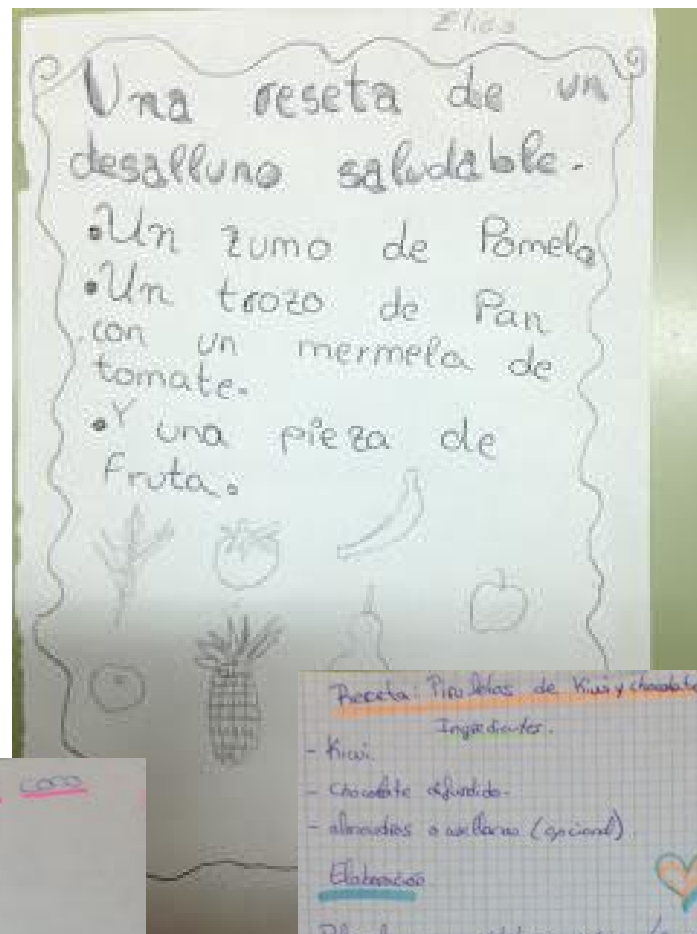 Elias
Una reseta de un
desalluno saludable.
•Un zumo de Pomelo
•Un trozo de Pan
con un mermela de
tomate.
•Y una pieza de
fruta.
coco
Receta: Piruletas de Kiwi y chocolate
Ingredientes.
- Kiwi.
- Chocolate
- almendras o avellanas (opcional).
Elaboración